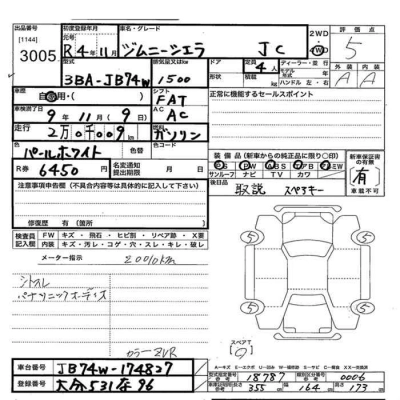 出品番号 初度登録年月 車名・グレード 2WD 評価点
[1144] 元号 R 4年 11月 ジムニーシエラ JC 4WD 5
3005
型式 排気量又はkw ドア 定員 4人 ディーラー・並行 外装 内装
3BA-JB74W 1500 形状 積載 kg モデル年式 年 A A
ハンドル 左・右
車歴 自家用・( ) シフト FAT 正常に機能するセールスポイント
車検満了日 9年 11月 9日 AC AC
走行 2万0千009km 燃料 ガソリン
色 パールホワイト 色替 色コード
装備品 (新車からの純正品に限り○印) 新車保証書の有無
サンルーフ ナビ TV カワ
R券 6450円 名変通知提出期限 月 日 後日 取説 スペアキー 有
車載不可
注意事項申告欄 (不具合内容等は具体的に記入して下さい)
修復歴 有 (箇所)
検査員記入欄 FW キズ・飛石・ヒビ割・リペア跡・X要
内装 キズ・汚レ・コゲ・穴・スレ・キレ・破レ
メーター指示 20010km
シトスレ
パナソニックオーディオ
カラーZVR
5 5
5 5
スペアT
A=キズ E=エクボ U=凹み W=補修跡 S=サビ C=腐食 XX=交換済
車台番号 JB74W-174827
登録番号 大分531な96
型式指定番号 18787 類別区分番号 0006
長さ 355cm 幅 164cm 高さ 173cm